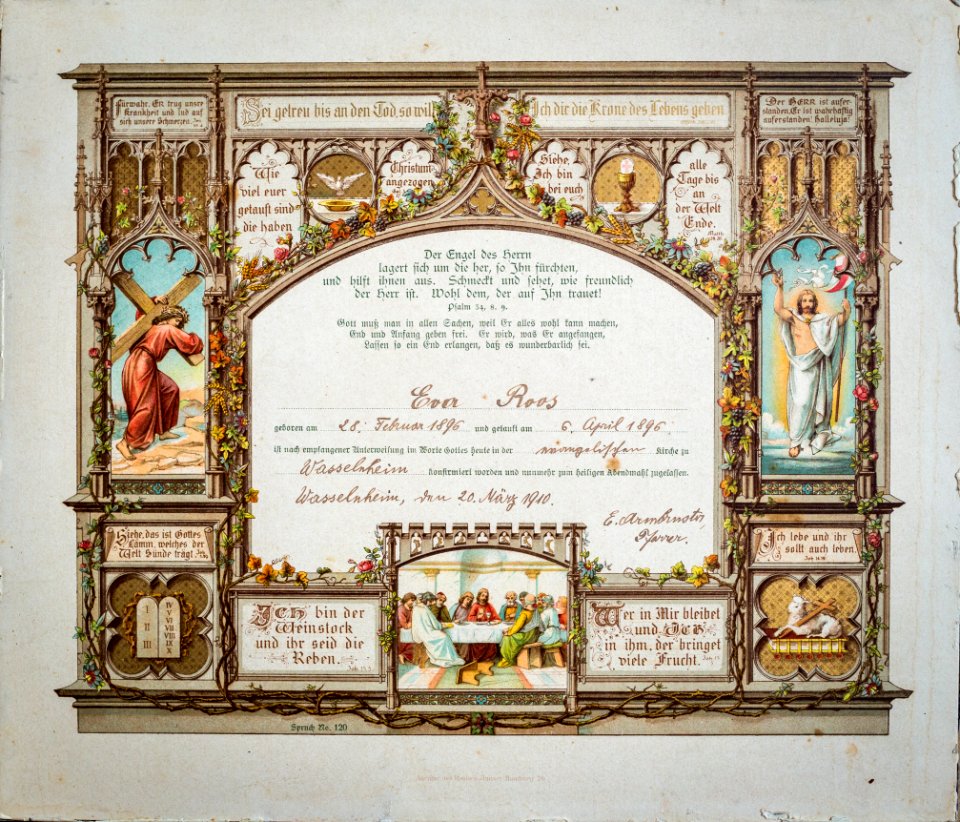 Fürwahr, ER trug unsre
Krankheit und lud auf
sich unsere Schmerzen.
Sei getreu bis an den Tod, so will
Ich dir die Krone des Lebens geben
Der HERR ist aufer-
standen, Er ist wahrhaftig
auferstanden! Halleluja!
Wie
viel euer
getauft sind
die haben
Christum
angezogen
Siehe,
Ich bin
bei euch
alle
Tage bis
an
der Welt
Ende.
Der Engel des Herrn
lagert sich um die her, so Ihn fürchten,
und hilft ihnen aus. Schmeckt und sehet, wie freundlich
der Herr ist. Wohl dem, der auf Ihn trauet!
Psalm 34, 8. 9.
Gott muß man in allen Sachen, weil Er alles wohl kann machen,
End und Anfang geben frei. Er wird, was Er angefangen,
Lassen so ein End erlangen, daß es wunderbarlich sei.
Eva Roos
geboren am 28. Februar 1896 und getauft am 6. April 1896
ist nach empfangener Unterweisung im Worte Gottes heute in der evangelischen Kirche zu
Wasselnheim konfirmiert worden und nunmehr zum heiligen Abendmahl zugelassen.
Wasselnheim, den 20. März 1910.
E. Armbruster,
Pfarrer.
Siehe, das ist Gottes
Lamm, welches der
Welt Sünde trägt.
Ich lebe und ihr
sollt auch leben.
Joh. 14, 19
I II III
IV V VI VII VIII IX X
ICH bin der
Weinstock
und ihr seid die
Reben. Joh. 15, 5
Wer in Mir bleibet
und ICH
in ihm, der bringet
viele Frucht.
Spruch No. 120